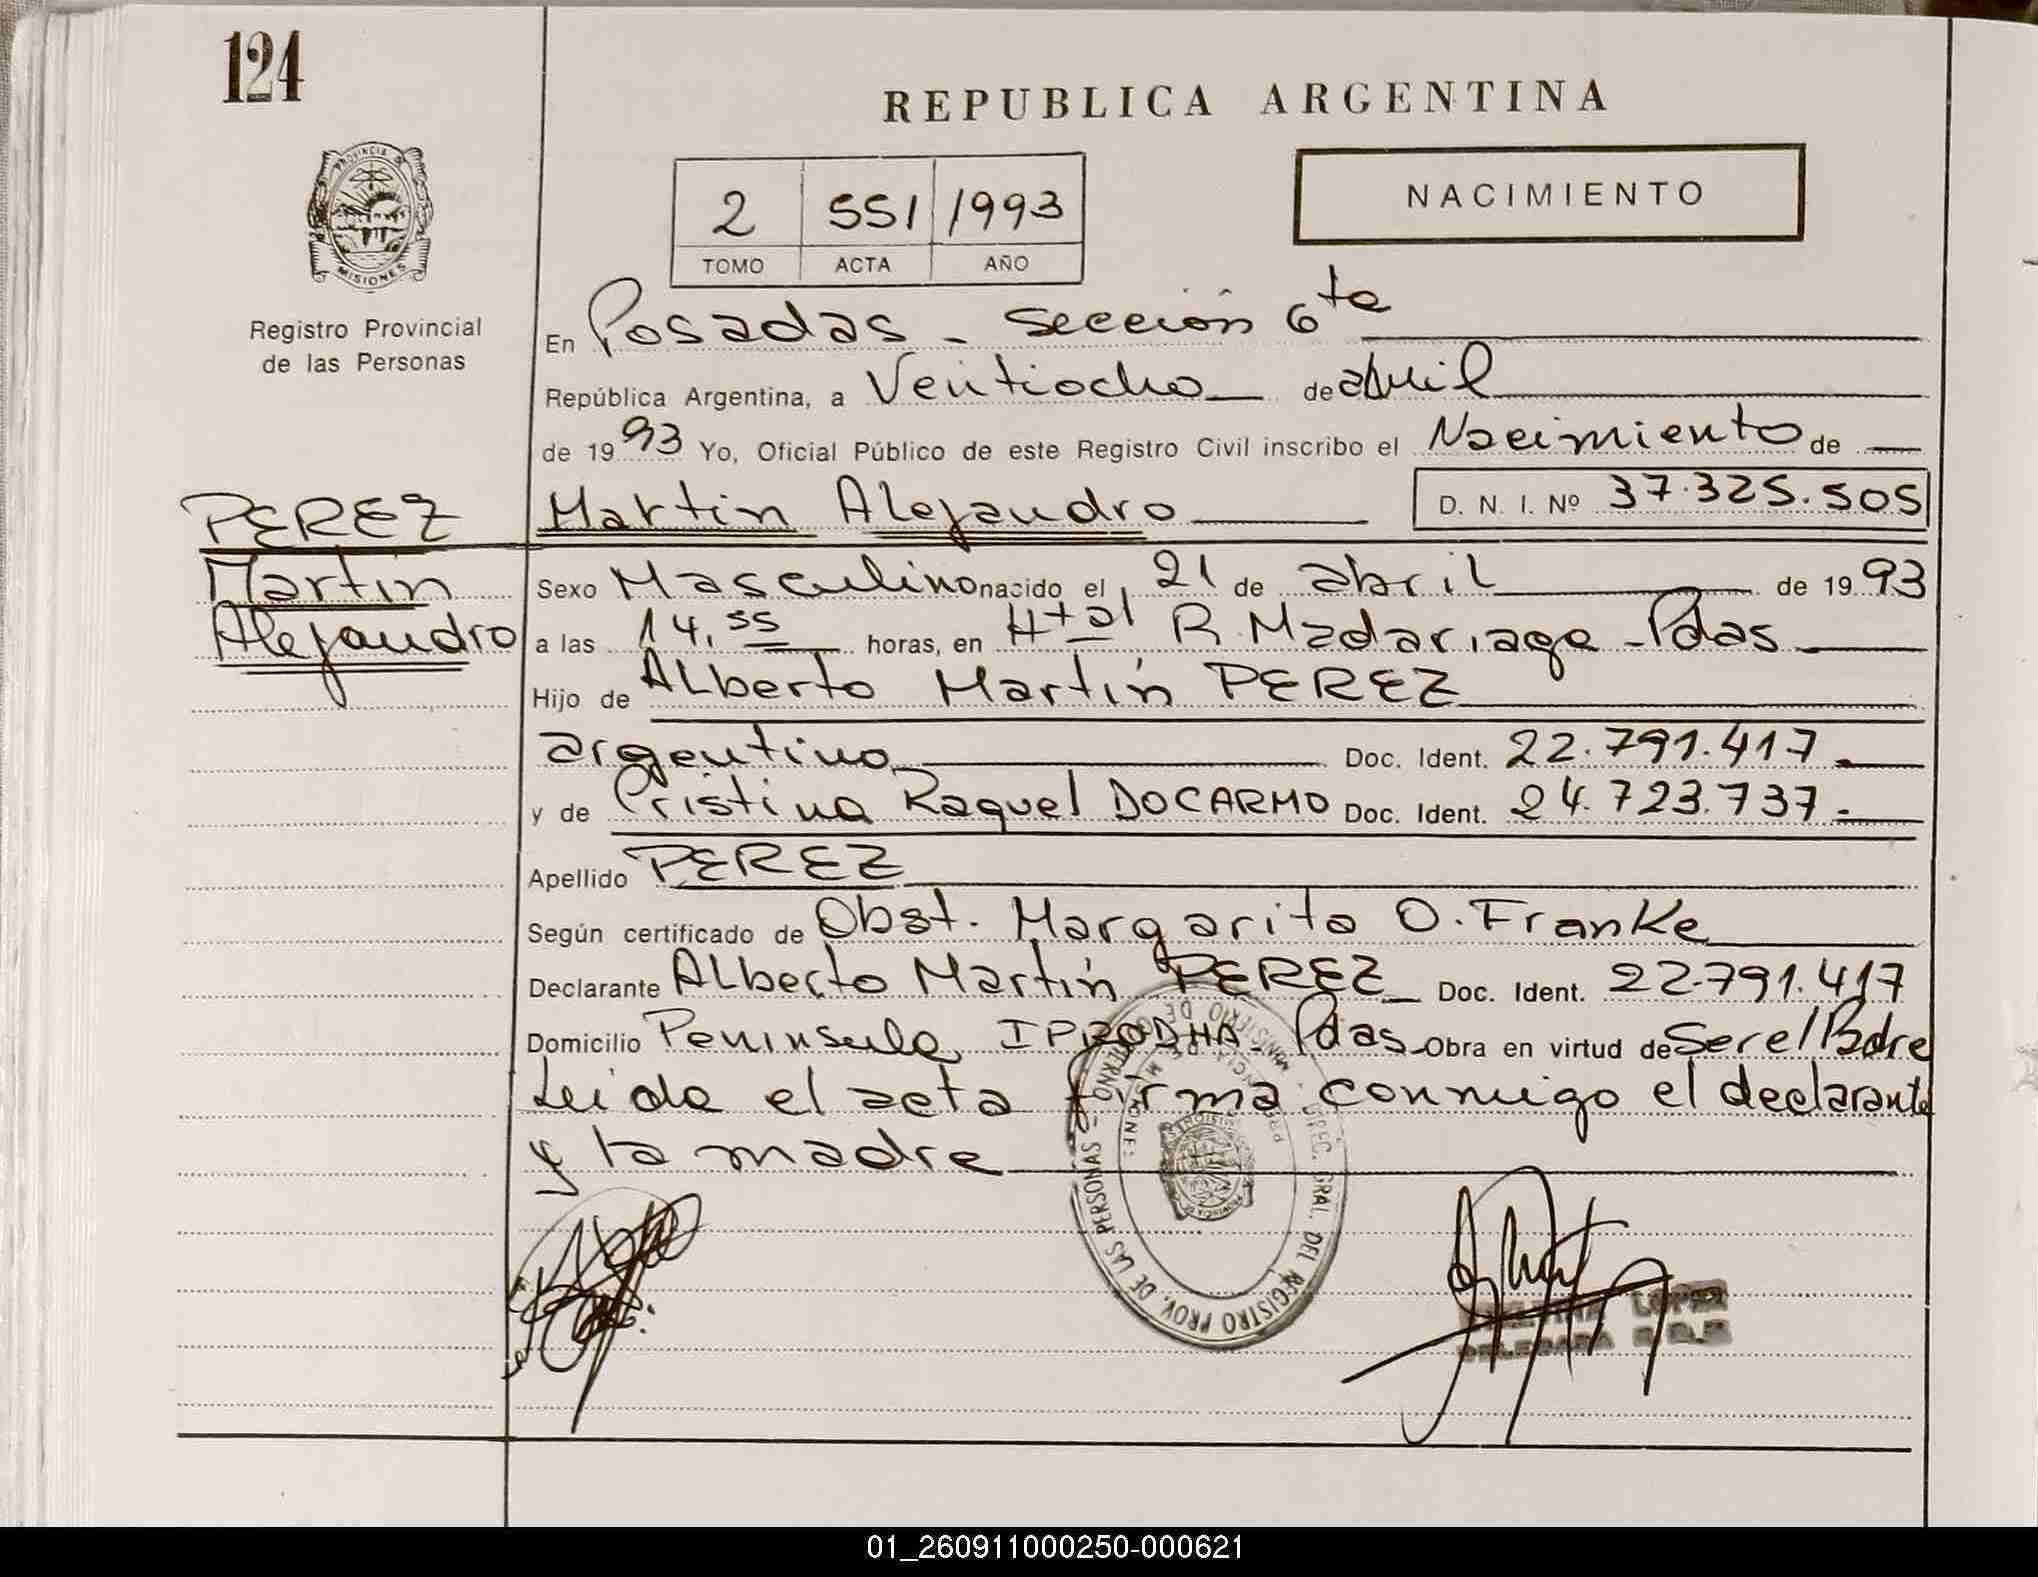 124
REPUBLICA ARGENTINA
PROVINCIA DE
MISIONES
2 551 1993
TOMO ACTA AÑO
NACIMIENTO
Registro Provincial
de las Personas
En Posadas - Sección 6ta
República Argentina, a Ventiocho de abril
de 1993 Yo, Oficial Público de este Registro Civil inscribo el Nacimiento de
PEREZ
Martin
Alejandro
Martin Alejandro D. N. I. Nº 37.325.505
Sexo Masculino nacido el 21 de abril de 1993
a las 14,55 horas, en Htal R. Madariaga - Pdas
Hijo de ALberto Martín PEREZ
argentino Doc. Ident. 22.791.417.
y de Cristina Raquel DOCARMO Doc. Ident. 24.723.737.-
Apellido PEREZ
Según certificado de Obst. Margarita O. Franke
Declarante ALberto Martín PEREZ Doc. Ident. 22.791.417
Domicilio Peninsula IPRODHA - Pdas Obra en virtud de Ser el Pdre
Leida el acta firma conmigo el declarante
y la madre
MINISTERIO DE GOBIERNO
PROVINCIA DE MISIONES
GRAL. DEL REGISTRO PROV. DE LAS PERSONAS
LOPEZ
01_260911000250-000621